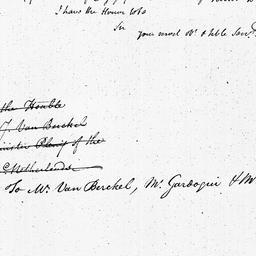 I have the Honor to be
Sir
your most Ob. & hble Serv.
the Honble
J. Van Berckel
inister Plenip of the
Netherlands
To Mr. Van Berckel, Mr. Gardoqui & M